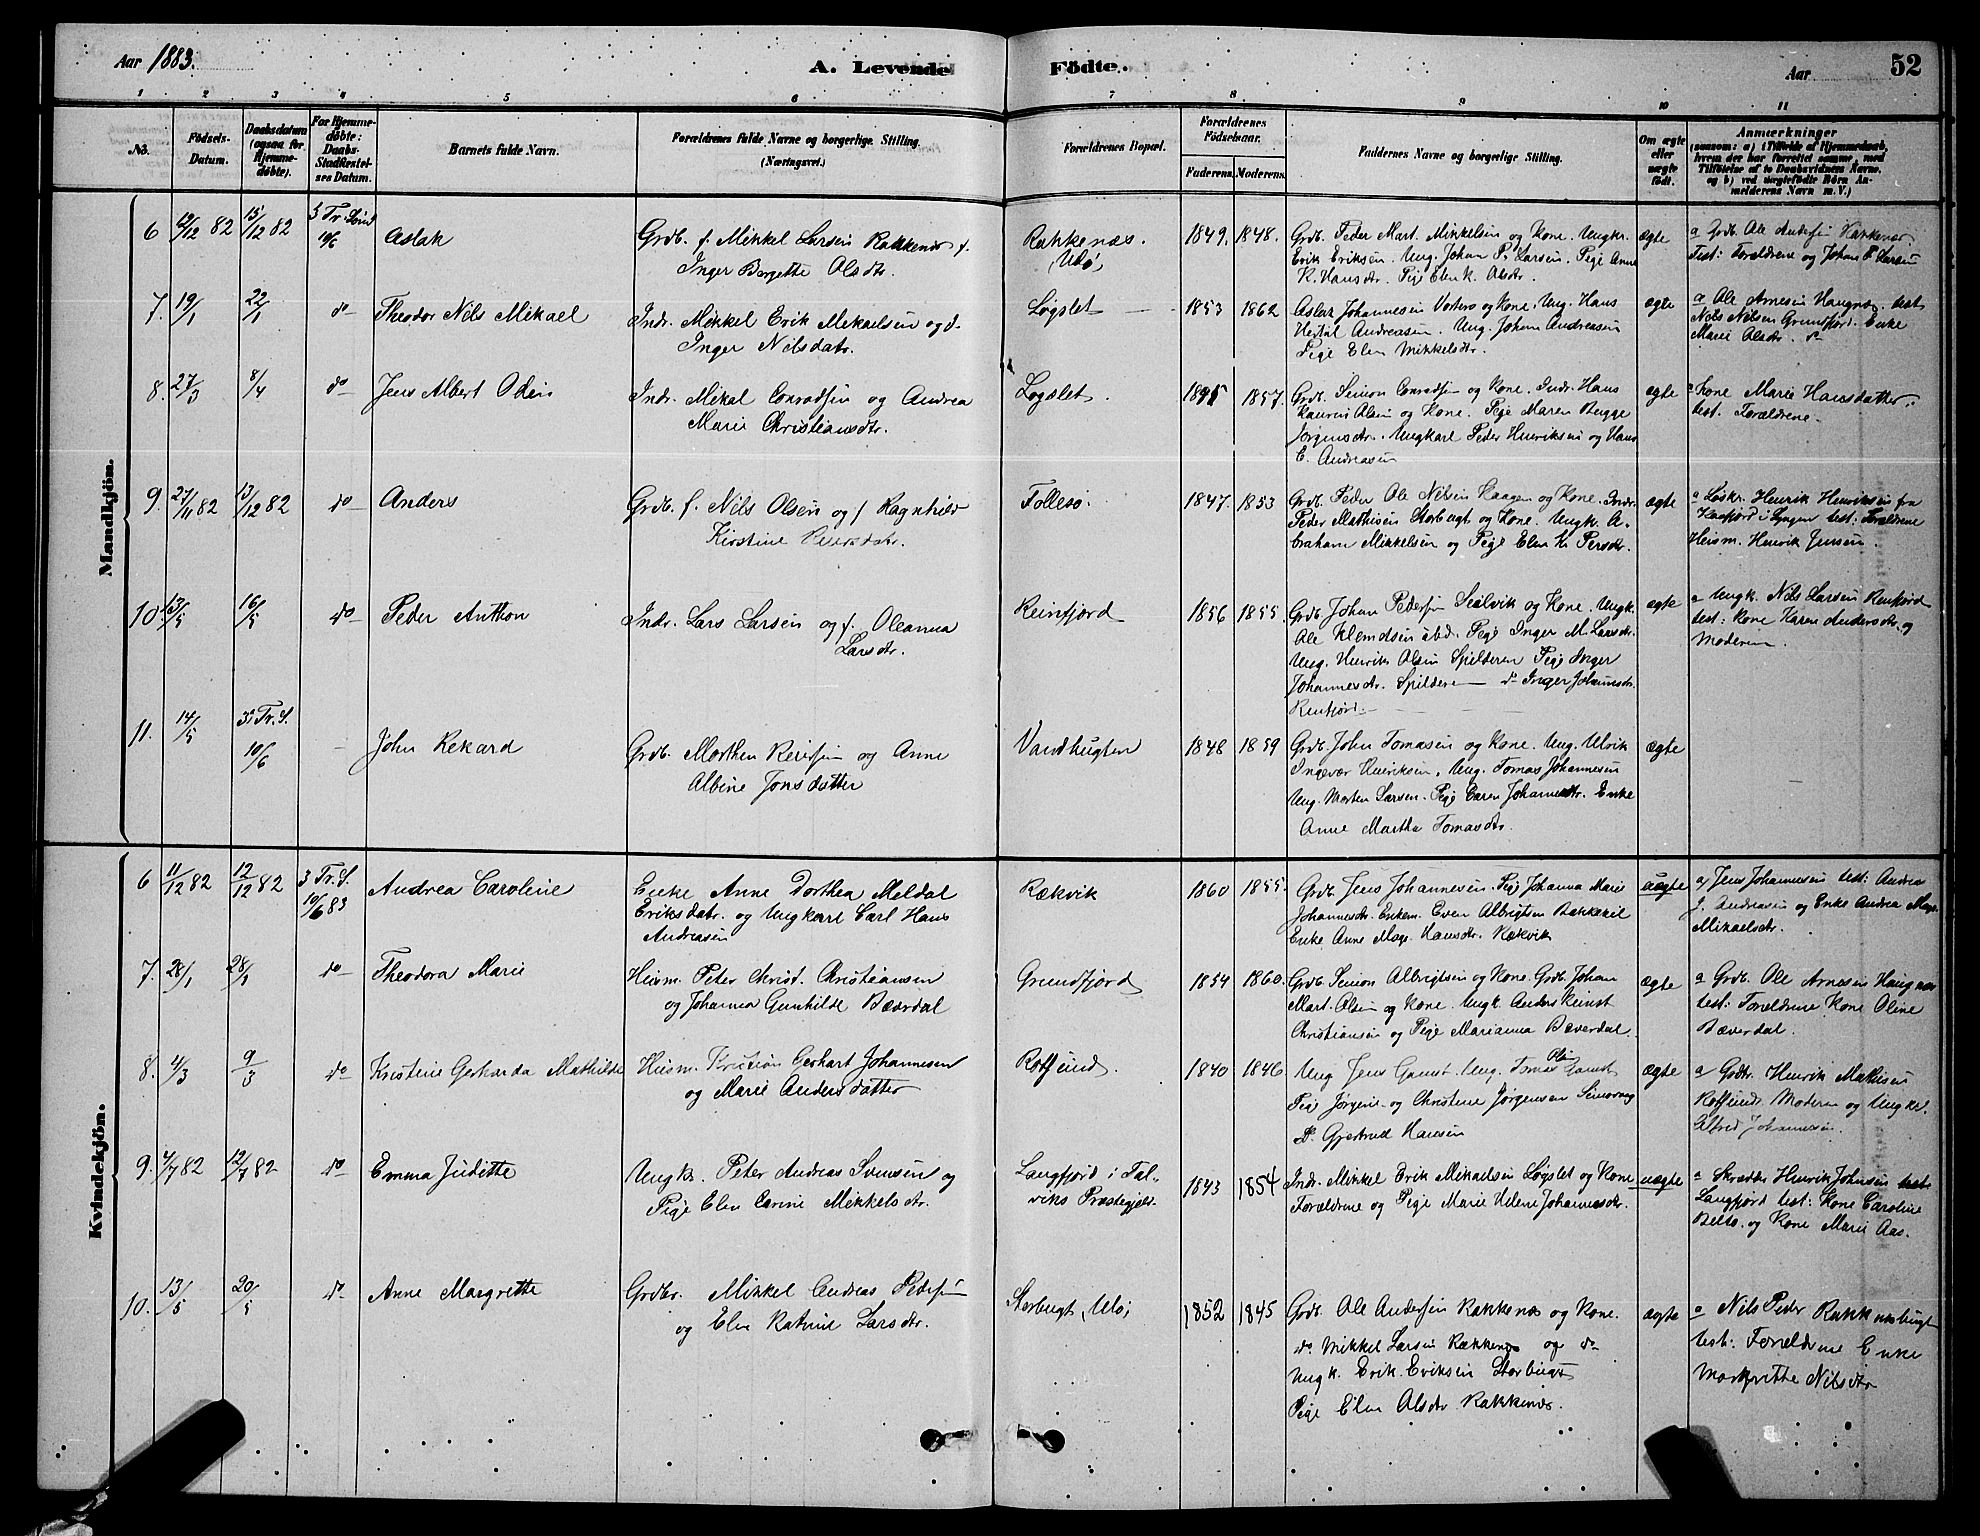 Aar 1883.
A. Levende Födte.
Aar
52
1 2 3 4 5 6 7 8 9 10 11
No.
Födsels-Datum.
Daabsdatum (ogsaa for Hjemme-døbte).
For Hjemme-døbte: Daabs-Stadfæstel-ses Datum.
Barnets fulde Navn.
Forældrenes fulde Navne og borgerlige Stilling. (Næringsvei.)
Forældrenes Bopæl.
Forældrenes Födselsaar.
Faderens. Moderens.
Faddernes Navne og borgerlige Stilling.
Om ægte eller uægte født.
Anmærkninger
(saasom: a) i Tilfælde af Hjemmedaab,
hvem der har forrettet samme, med
Tilføielse af to Daabsvidners Navne,
og b) ved uægtefødte Börn An-
melderens Navn m. V.)
Mandkjön.
6 12/12 82 15/12 82 3 Tr. Sönd 10/6 Aslak
Grdb. f. Mikkel Larsen Rakkenæs f.
Inger Borgette Olsdtr.
Rakkenæs.
Ulø,
1849. 1848.
Grdb. Peder Mart. Mikkelsen og Kone. Ungkr.
Erik Eriksen. Ung. Johan P. Larsen. Pige Anne
K. Hansdtr. Pige Elen K. Olsdtr.
ægte
a Grdb. Ole Andersen Rakkenæs.
Test: Forældrene og Johan P. Larsen
7. 19/1 22/1 do Theodor Nils Mikael
Indr. Mikkel Erik Mikaelsen og d.
Inger Nilsdatr.
Løgslet
1853 1862
Aslak Johannesen og Kone. Ung. Hans
Andreasen. Ung. Johan Andreasen
Pige Elen Mikkelsdtr.
ægte
a Ole Arnesen Haugnæs, test
Nils Nilsen Grundfjord. Enke
Marie Olsdtr. do
8. 27/3 8/4 do Jens Albert Odin
Indr. Mikal Conradsen og Andrea
Marie Christiansdtr.
Løgslet.
1857.
Grdb. Simon Conradsen og Kone. Indr. Hans
Laurits Olsen og Kone. Pige Maren Bugge
Jørgensdtr. Ungkarl Peder Henriksen og Hans
E. Andreasen
ægte
a Kone Marie Hansdatter.
test: Forældrene.
9. 27/11 82 13/12 82 do Anders
Grdb. f. Nils Olsen og f Ragnhild
Kirstine
Follesø.
1847. 1853
Grdb. Peder Ole Nilsen Kaagen og Kone. Indr.
Peder Mathisen Storbugt og Kone. Ungk. A-
braham Mikkelsen og Pige Elen K. Persdtr.
ægte
a Løskr. Henrik Henriksen fra
Kaafjord i Lyngen test: Forældrene
Husm. Henrik Jensen.
10. 13/5 16/5 do Peder Anthon
Indr. Lars Larsen og f. Oleanna
Larsdtr.
Reinfjord
1856 1855
Grdb. Johan Pedersen og Kone. Ungk.
Ole Klemdsen ibd. Pige Inger M. Larsdtr.
Ung. Henrik Olsen Spilderen Pige Inger
Johannesdtr. Spilderen do Inger Johannesdtr.
Reinfjord.
ægte
a Ungk. Nils Larsen Renfjord
test: Kone Karen Andersdtr. og
Moderen
11. 14/5 3. Tr. S. 10/6 John Rekard
Grdb. Morthen Reiersen og Anne
Albine Jonsdatter
Vandbugten
1848 1859
Grdb. John Tomasen og Kone. Ung. Ulrik
Ingevar Henriksen. Ung. Tomas Johannesen
Ung. Morten Larsen. Pige Caren Johannesdtr. Enke
Anne Martha Tomasdtr.
ægte
Kvindekjön.
6 11/12 82 12/12 82 3 Tr. S. 10/6 83 Andrea Caroline
Enke Anne Dorthea Meldal
Eriksdatr. og Ungkarl Carl Hans
Andreasen
Rækvik
1860 1855.
Grdb. Jens Johannesen. Pige Johanna Marie
Johannesdtr. Enkem. Even Albrigtsen Bakkekil
Enke Anne Mage. Hansdtr. Rækvik
uægte
a/ Jens Johannesen test: Andrea
J. Andreasen og Enke Andrea Magr.
Mikaelsdtr.
7. 28/1 28/1 do Theodora Marie
Husm. Peter Christ. Christiansen
og Johanna Gunhilde Bæverdal
Grundfjord
1854 1860.
Grdb. Simon Albrigtsen og Kone. Grdb. Johan
Mart. Olsen og Kone. Ungk. Anders Reinst
Christiansen og Pige Marianna Bæverdal.
ægte
a Grdb. Ole Arnesen Haugnæs
test: Forældrene Kone Oline
Bæverdal.
8. 4/3 9/3 do Kristine Gerharda Mathilde
Husm. Kristian Gerhart Johannesen
og Marie Andersdatter
Rotsund.
1840 1846
Ung Jens Gamst. Ung. Tomas Olai Gamst
Pige Jørgine og Christine Jørgensen
Do. Gjertrud Hansen
ægte
a Grdbr. Henrik Mathisen
Rotsund. Moderen og Ungkr.
Johannesen.
9. 4/7 82 12/7 82 do Emma Juditte
Ungk. Peter Andreas Svensen og
Pige Elen Carine Mikkelsdtr.
Langfjord i Tal-
viks Præstegjeld.
1843 1854
Indr. Mikkel Erik Mikaelsen Løgslet og Kone
Forældrene og Pige Marie Helene Johannesdtr.
uægte
a Skrædder Henrik Johnsen
Langfjord test: Kone Caroline
Belto. og Kone Marie Aas.
10. 13/5 20/5 do Anne Margrette
Grdbr. Mikkel Andreas Pedersen
og Elen Katrine Larsdtr.
Storbugt, Ulø,
1852 1845
Grdb. Ole Andersen Rakkenæs og Kone.
do Mikkel Larsen Rækkenæs og do
Ungk. Erik Eriksen Storbugt
Pige Elen Olsdtr. Rakkenæs.
ægte
a Nils Peder Rakkenesbugt
test: Forældrene Enke
Margrithe Nilsdtr